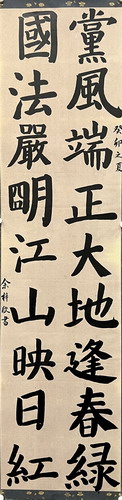 黨風端正大地逢春綠
癸卯之夏
國法嚴明江山映日紅